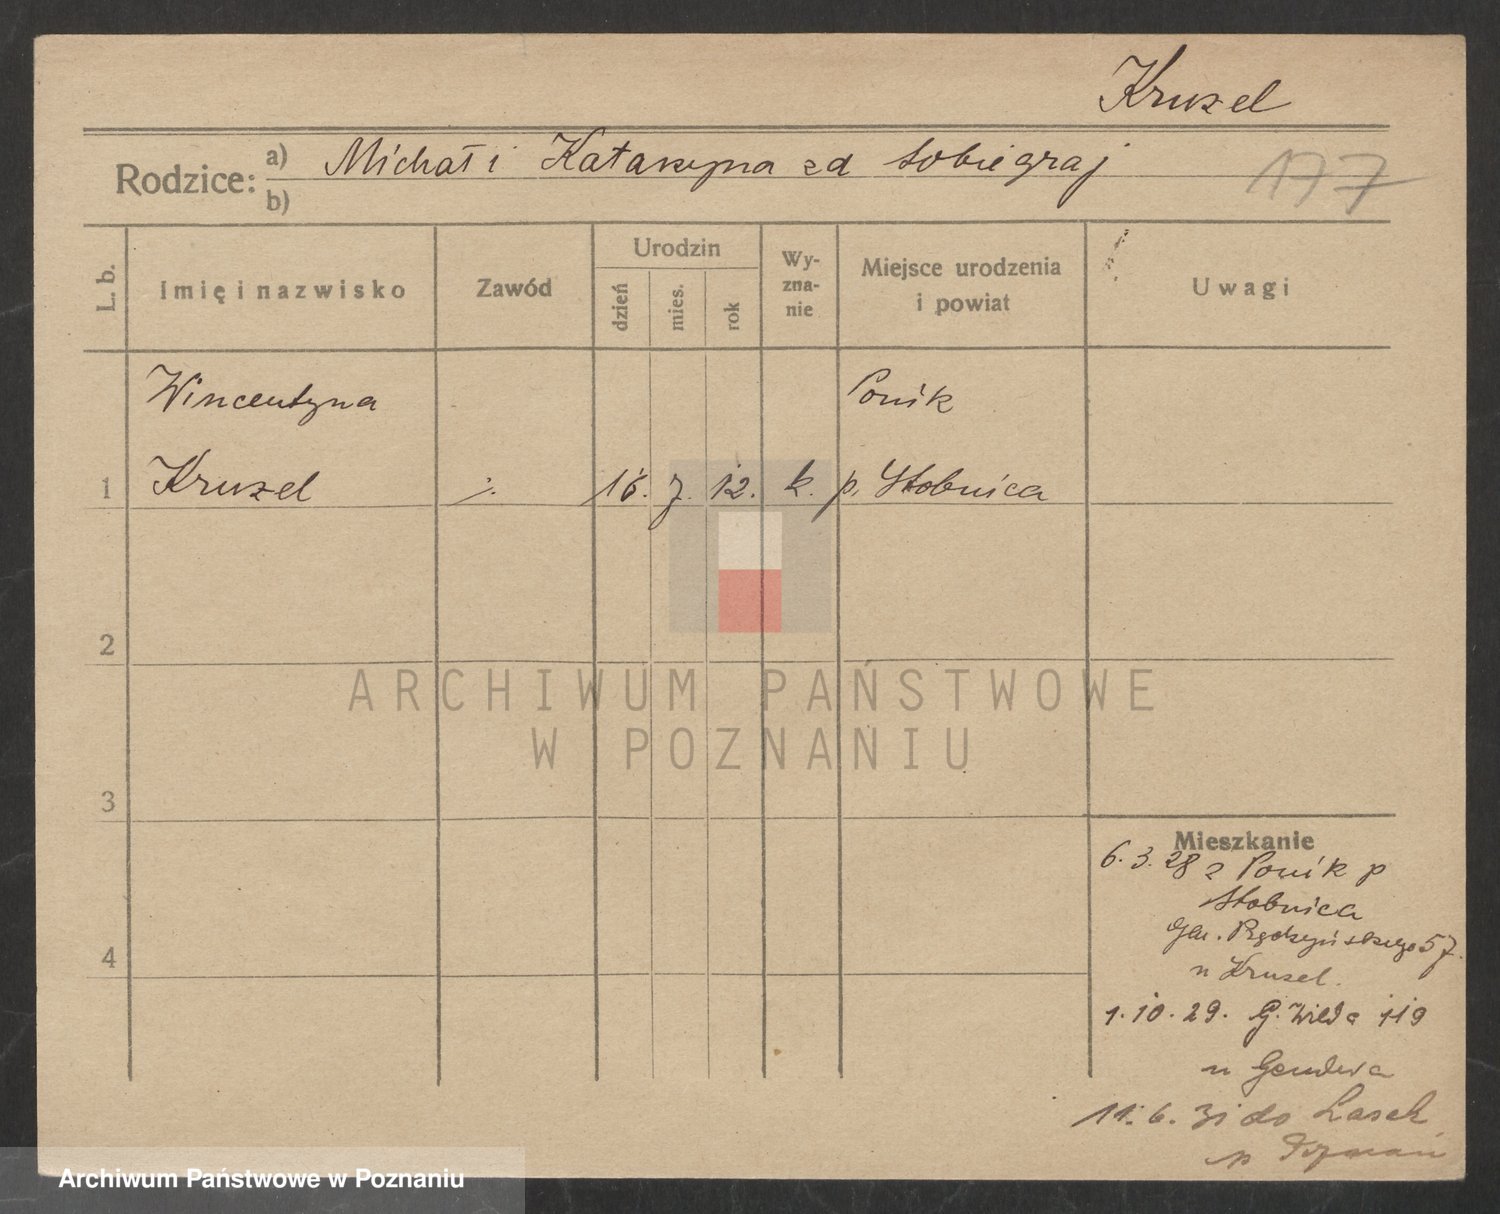 Kruzel
Rodzice:
a) Michał i Katarzyna zd Sobiegraj
b)
177
L. b.
Imię i nazwisko
Zawód
Urodzin
dzień
mies.
rok
Wy-
zna-
nie
Miejsce urodzenia
i powiat
Uwagi
Wincentyna
Ponik
1 Kruzel
16. 7. 12. k. p. Stobnica
2
3
4
Mieszkanie
6. 3. 28 z Ponik p
Stobnica
57.
u Kruzel.
1. 10. 29. G. Wilda 119
u
11. 6. 31 do Lasek
p Poznań
ARCHIWUM PAŃSTWOWE
W POZNANIU
Archiwum Państwowe w Poznaniu